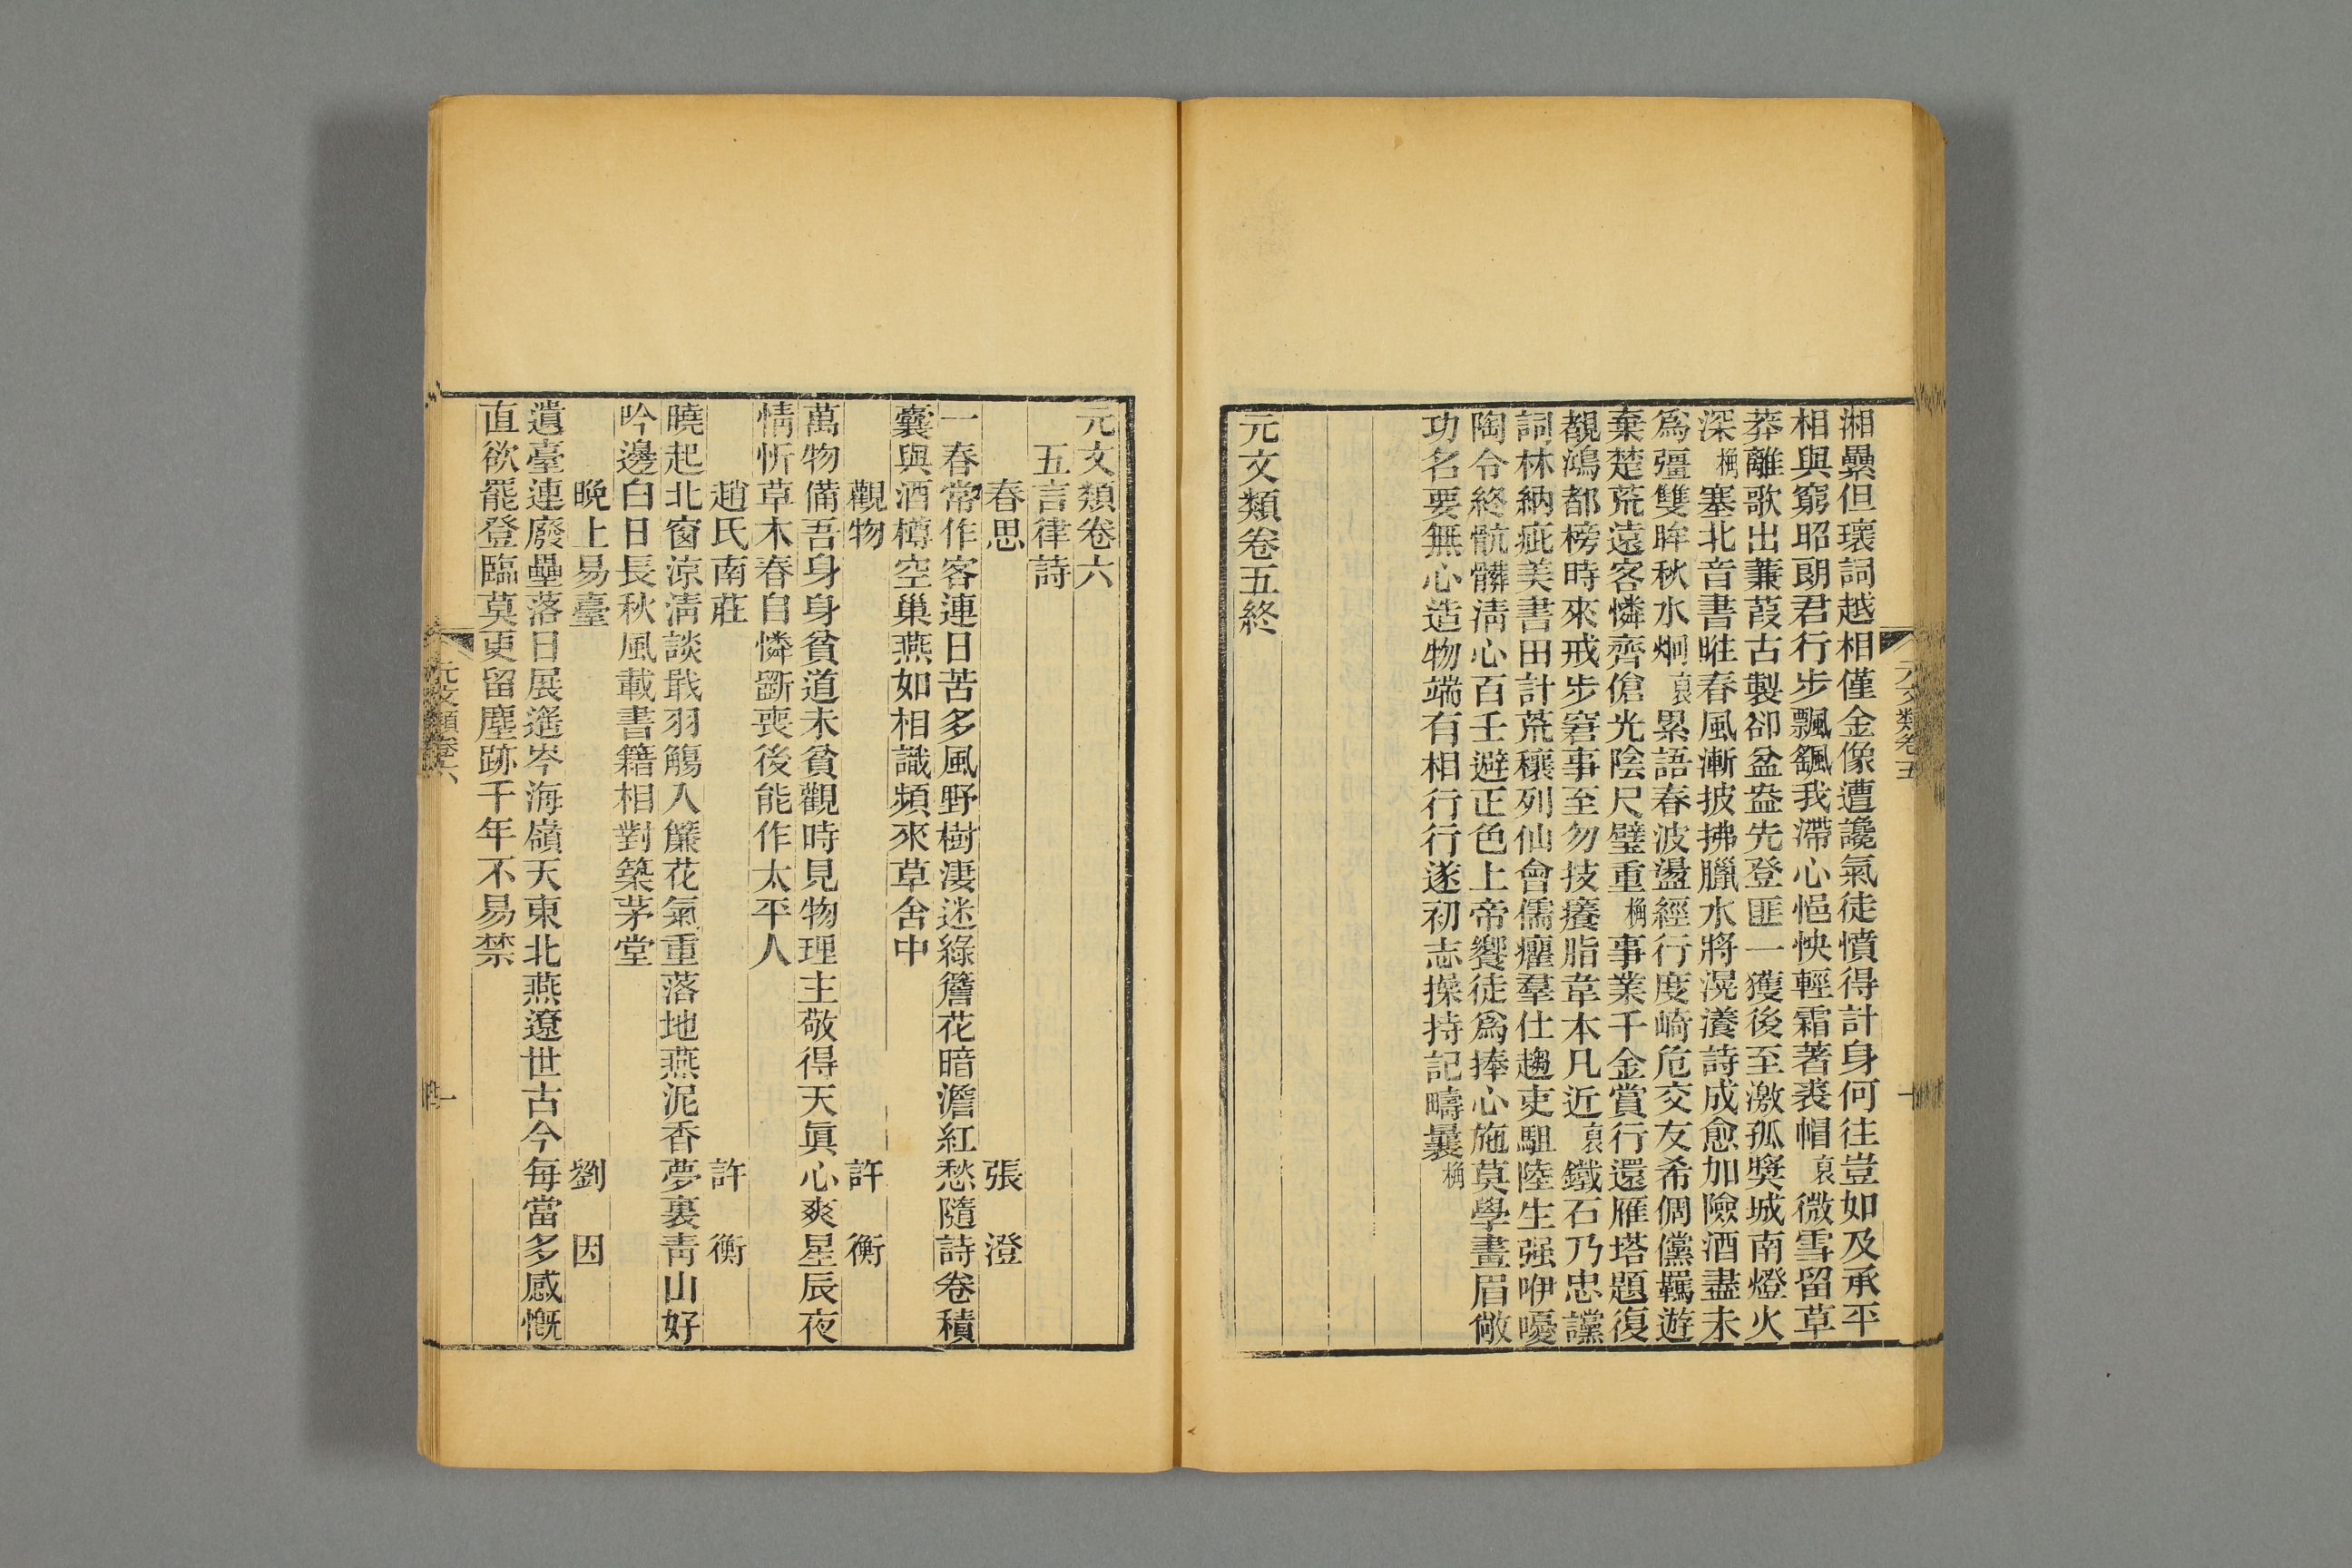 湘纍但瓌詞越相僅金像遭讒氣徒憤得計身何往豈如及承平
相與窮昭朗君行步飄颻我滯心悒怏輕霜著裘帽裒微雪留草
莽離歌出蒹葭古製卻盆盎先登匪一獲後至激孤奬城南燈火
深桷塞北音書暀春風漸披拂臘水將滉瀁詩成愈加險酒盡未
爲彊雙眸秋水炯裒累語春波盪經行度崎危交友希倜儻羈遊
棄楚荒遠客憐齊傖光陰尺璧重桷事業千金賞行還雁塔題復
覩鴻都榜時來戒步窘事至勿技癢脂韋本凡近裒鐵石乃忠讜
詞林納疵美書田計荒穰列仙會儒癯羣仕趨吏駔陸生强咿嚘
陶令終骯髒淸心百壬避正色上帝饗徒爲捧心施莫學畫眉敞
功名要無心造物端有相行行遂初志操持記疇曩桷
元文類卷五終
元文類卷五
十
元文類卷六
五言律詩
春思 張澄
一春常作客連日苦多風野樹凄迷綠簷花暗澹紅愁隨詩卷積
囊與酒樽空巢燕如相識頻來草舍中
觀物 許衡
萬物備吾身身貧道未貧觀時見物理主敬得天眞心爽星辰夜
情忻草木春自憐斵喪後能作太平人
趙氏南莊 許衡
曉起北窗涼淸談戢羽觴入簾花氣重落地燕泥香夢裏靑山好
吟邊白日長秋風載書籍相對築茅堂
晚上易臺 劉因
遺臺連廢壘落日展遙岑海嶺天東北燕遼世古今每當多感慨
直欲罷登臨莫更留塵跡千年不易禁
元文類卷六
一